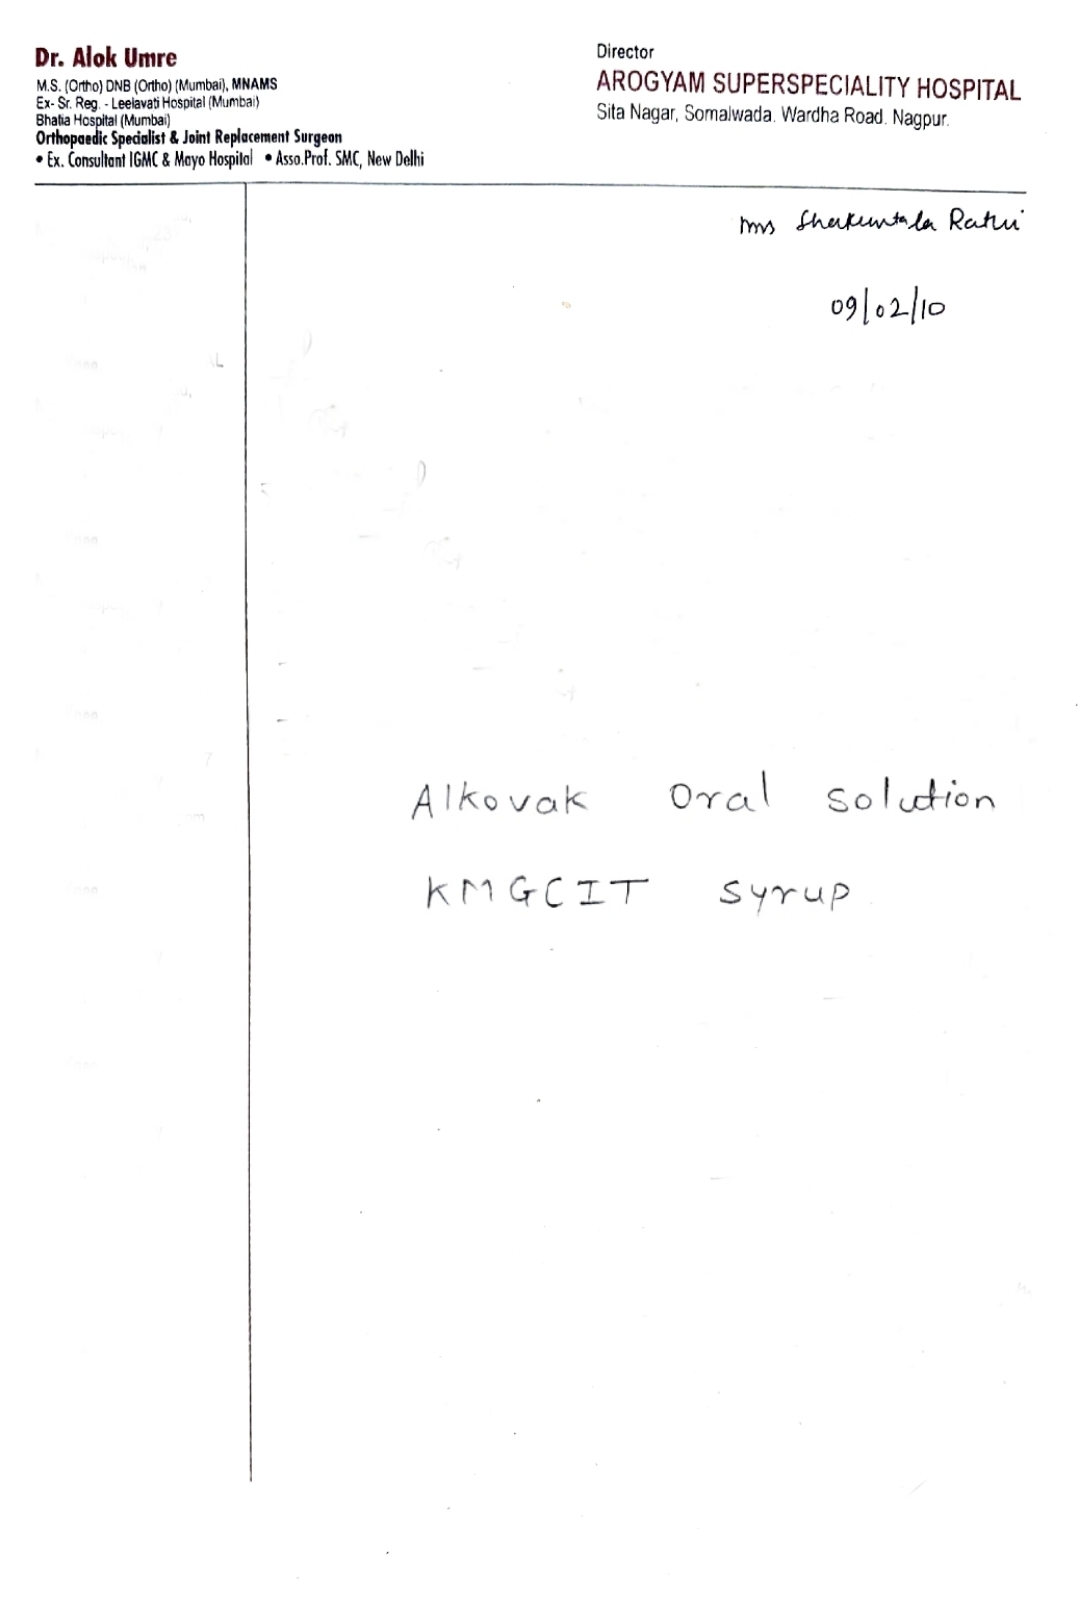 Dr. Alok Umre
M.S. (Ortho) DNB (Ortho) (Mumbai), MNAMS
Ex- Sr. Reg. - Leelavati Hospital (Mumbai)
Bhatia Hospital (Mumbai)
Orthopaedic Specialist & Joint Replacement Surgeon
• Ex. Consultant IGMC & Mayo Hospital • Asso.Prof. SMC, New Delhi
Director
AROGYAM SUPERSPECIALITY HOSPITAL
Sita Nagar, Somalwada. Wardha Road. Nagpur.
Mrs Shakuntala Rathi
09/02/10
Alkovak Oral Solution
KMGCIT Syrup